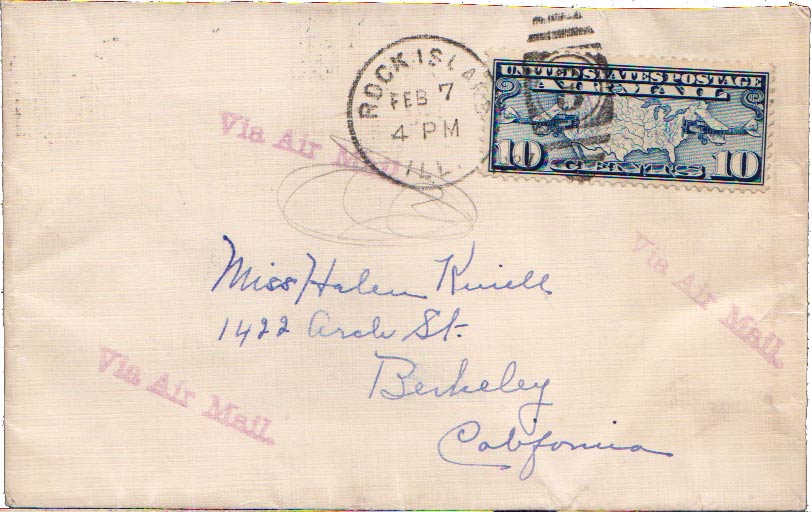 ROCK ISLAND
FEB 7
4 PM
ILL.
UNITED STATES POSTAGE
AIR MAIL
10 CENTS 10
Via Air Mail
Miss Helen
1422 Arch St.
Berkeley
California
Via Air Mail.
Via Air Mail.